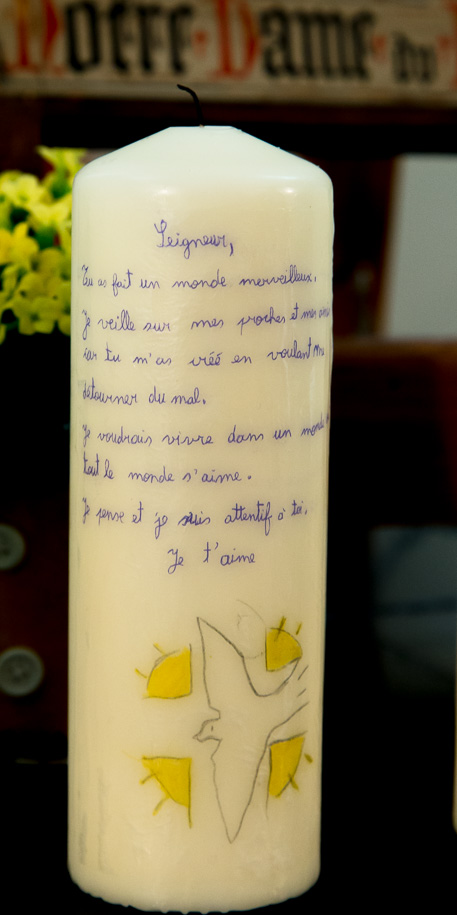 Notre Dame du
Seigneur,
Tu as fait un monde merveilleux.
Je veille sur mes proches et mes
car tu m'as créé en voulant me
détourner du mal.
Je voudrais vivre dans un monde
tout le monde s'aime.
Je pense et je suis attentif à toi.
Je t'aime